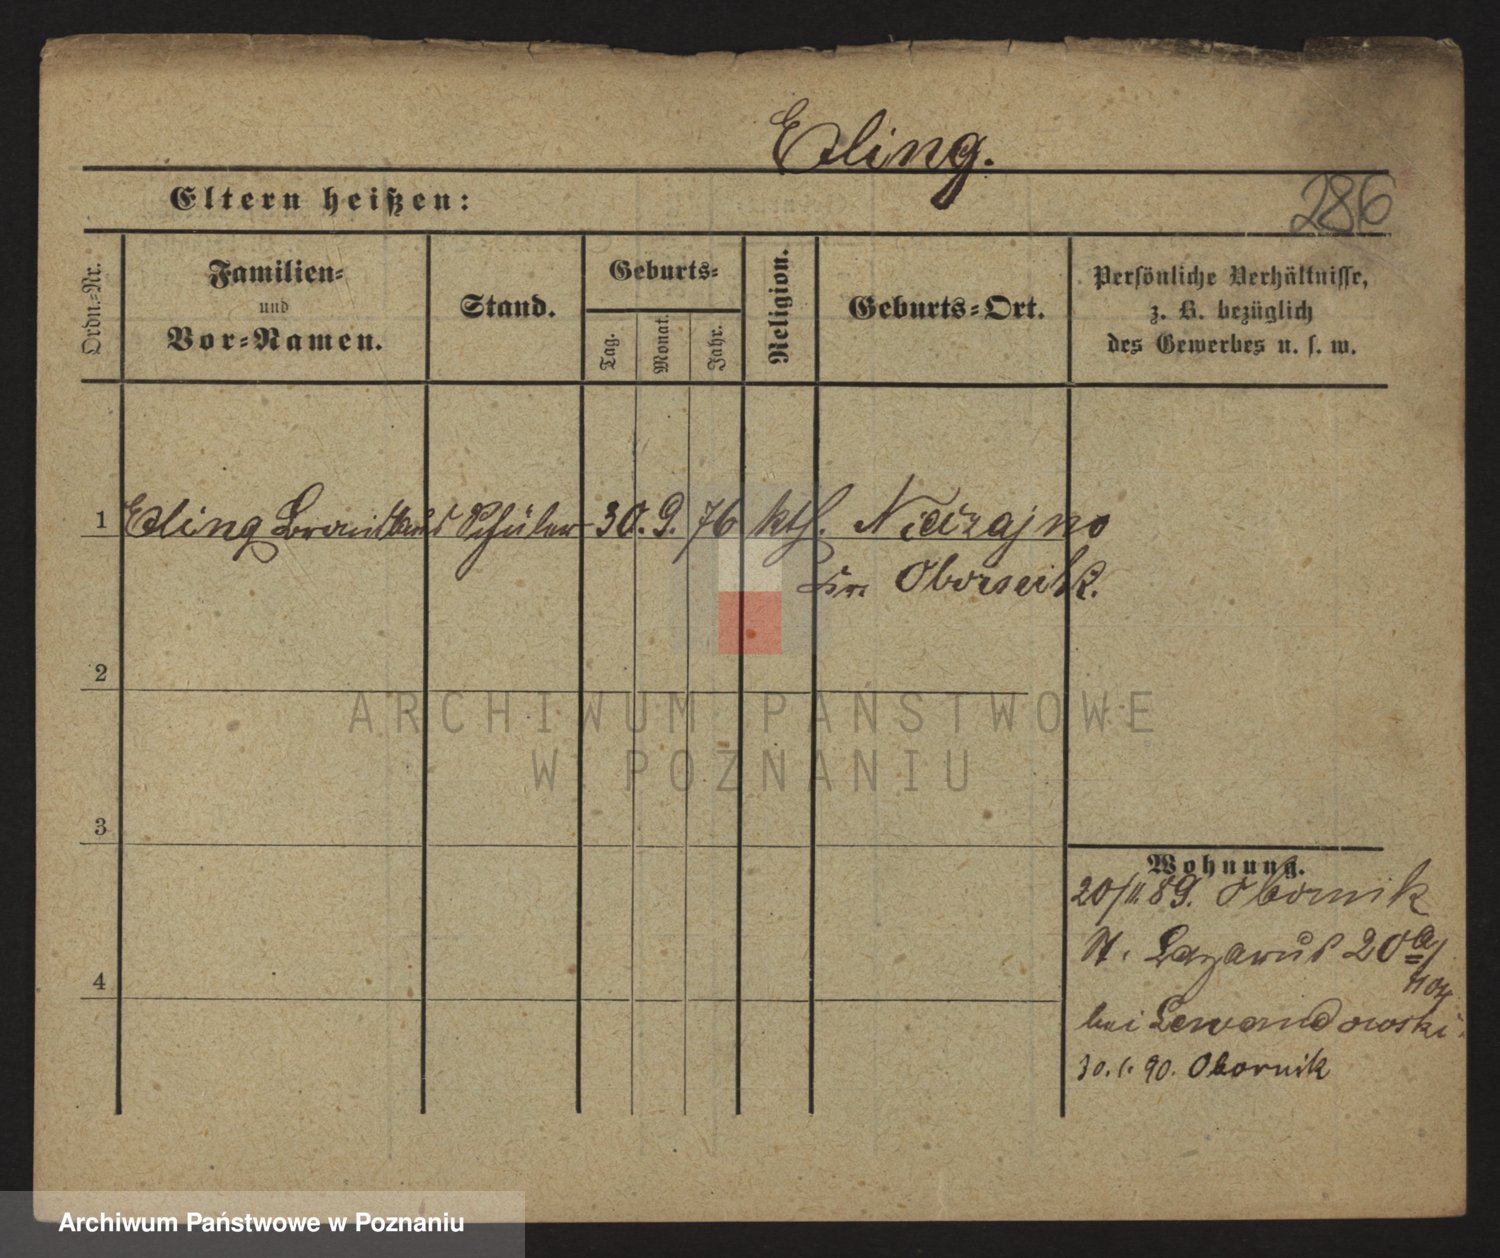 Edling.
286
Eltern heißen:
Ordn.-Nr.
Familien-
und
Vor-Namen.
Stand.
Geburts-
Tag.
Monat.
Jahr.
Religion.
Geburts-Ort.
Persönliche Verhältnisse,
z. B. bezüglich
des Gewerbes u. s. w.
1 Edling Schüler 30. 9. 76 kth.
Obornik.
2
ARCHIWUM PAŃSTWOWE
W POZNANIU
3
Wohnung.
20/11. 89. Obornik
St. Lazarus 20a/
4
bei Lewandowski
30. 1. 90. Obornik
Archiwum Państwowe w Poznaniu